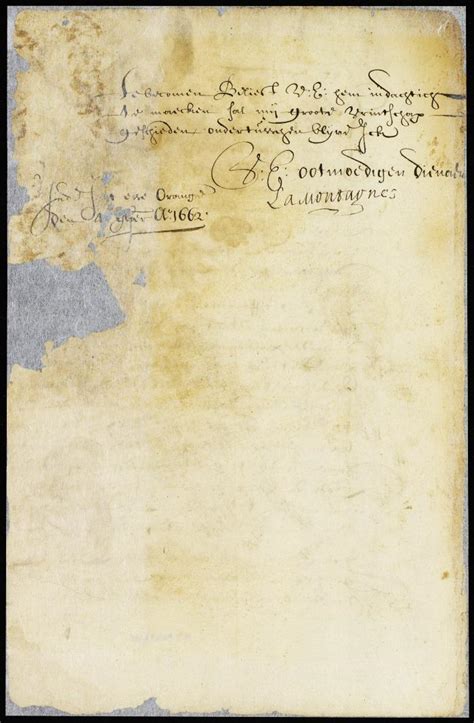 te becomen Belieft V: E: hem indachtich
te maecken sal mij groote vrintschap
geschieden ondertusschen blijve Ick
V: E: ootmoedigen dienaer
La Montagne
fort Orange
den 4 A° 1662.